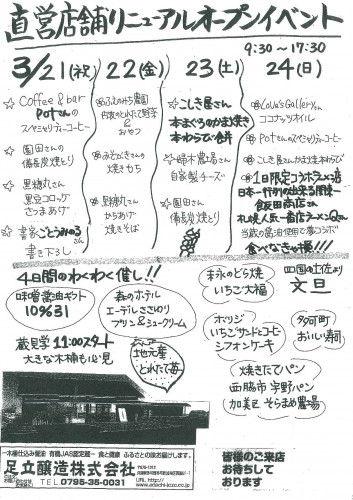 直営店舗リニューアルオープンイベント
9:30～17:30
3/21(祝)
22(金)
23(土)
24(日)
☆ Coffee & bar
Potさんの
スペシャリティーコーヒー
☆ 園田さんの
備長炭焼とり
☆ 黒糖丸さん
黒豆コロッケ
さつまあげ
☆ 書家ごとうみのるさん
書き下ろし
おやつ
焼きもち
からあげ
焼きそば
☆ こしき屋さん
本まぐろのかま焼き
☆ 婦木農場さん
自家製チーズ
☆ 園田さん
備長炭焼とり
ココナッツオイル
Potさんのスペシャリティーコーヒー
1日限定コラボラーメン
日本一行列の出来る関東
飯田商店さん
札幌人気一番店ラーメンQさん
食べなきゃ損!!!
4日間のわくわく催し!!
味噌醤油ギフト
109631
森のホテル
エーデルささゆり
プリン&シュークリーム
末永のどら焼
いちご大福
四国の土佐より
文旦
蔵見学 11:00スタート
大きな木桶も必見
地元産
とれたて苺
いちごサンドとコーヒー
シフォンケーキ
多可町
おいしい寿司
焼きたてパン
西脇市 宇野パン
加美区 そらまめ農場
木桶仕込み醤油 有機JAS認定蔵 食と健康 ふるさとの味お届けします。
足立醸造株式会社
TEL 0795-35-0031
URL http://www.adachi-jozo.co.jp
皆様のご来店
お待ちして
おります